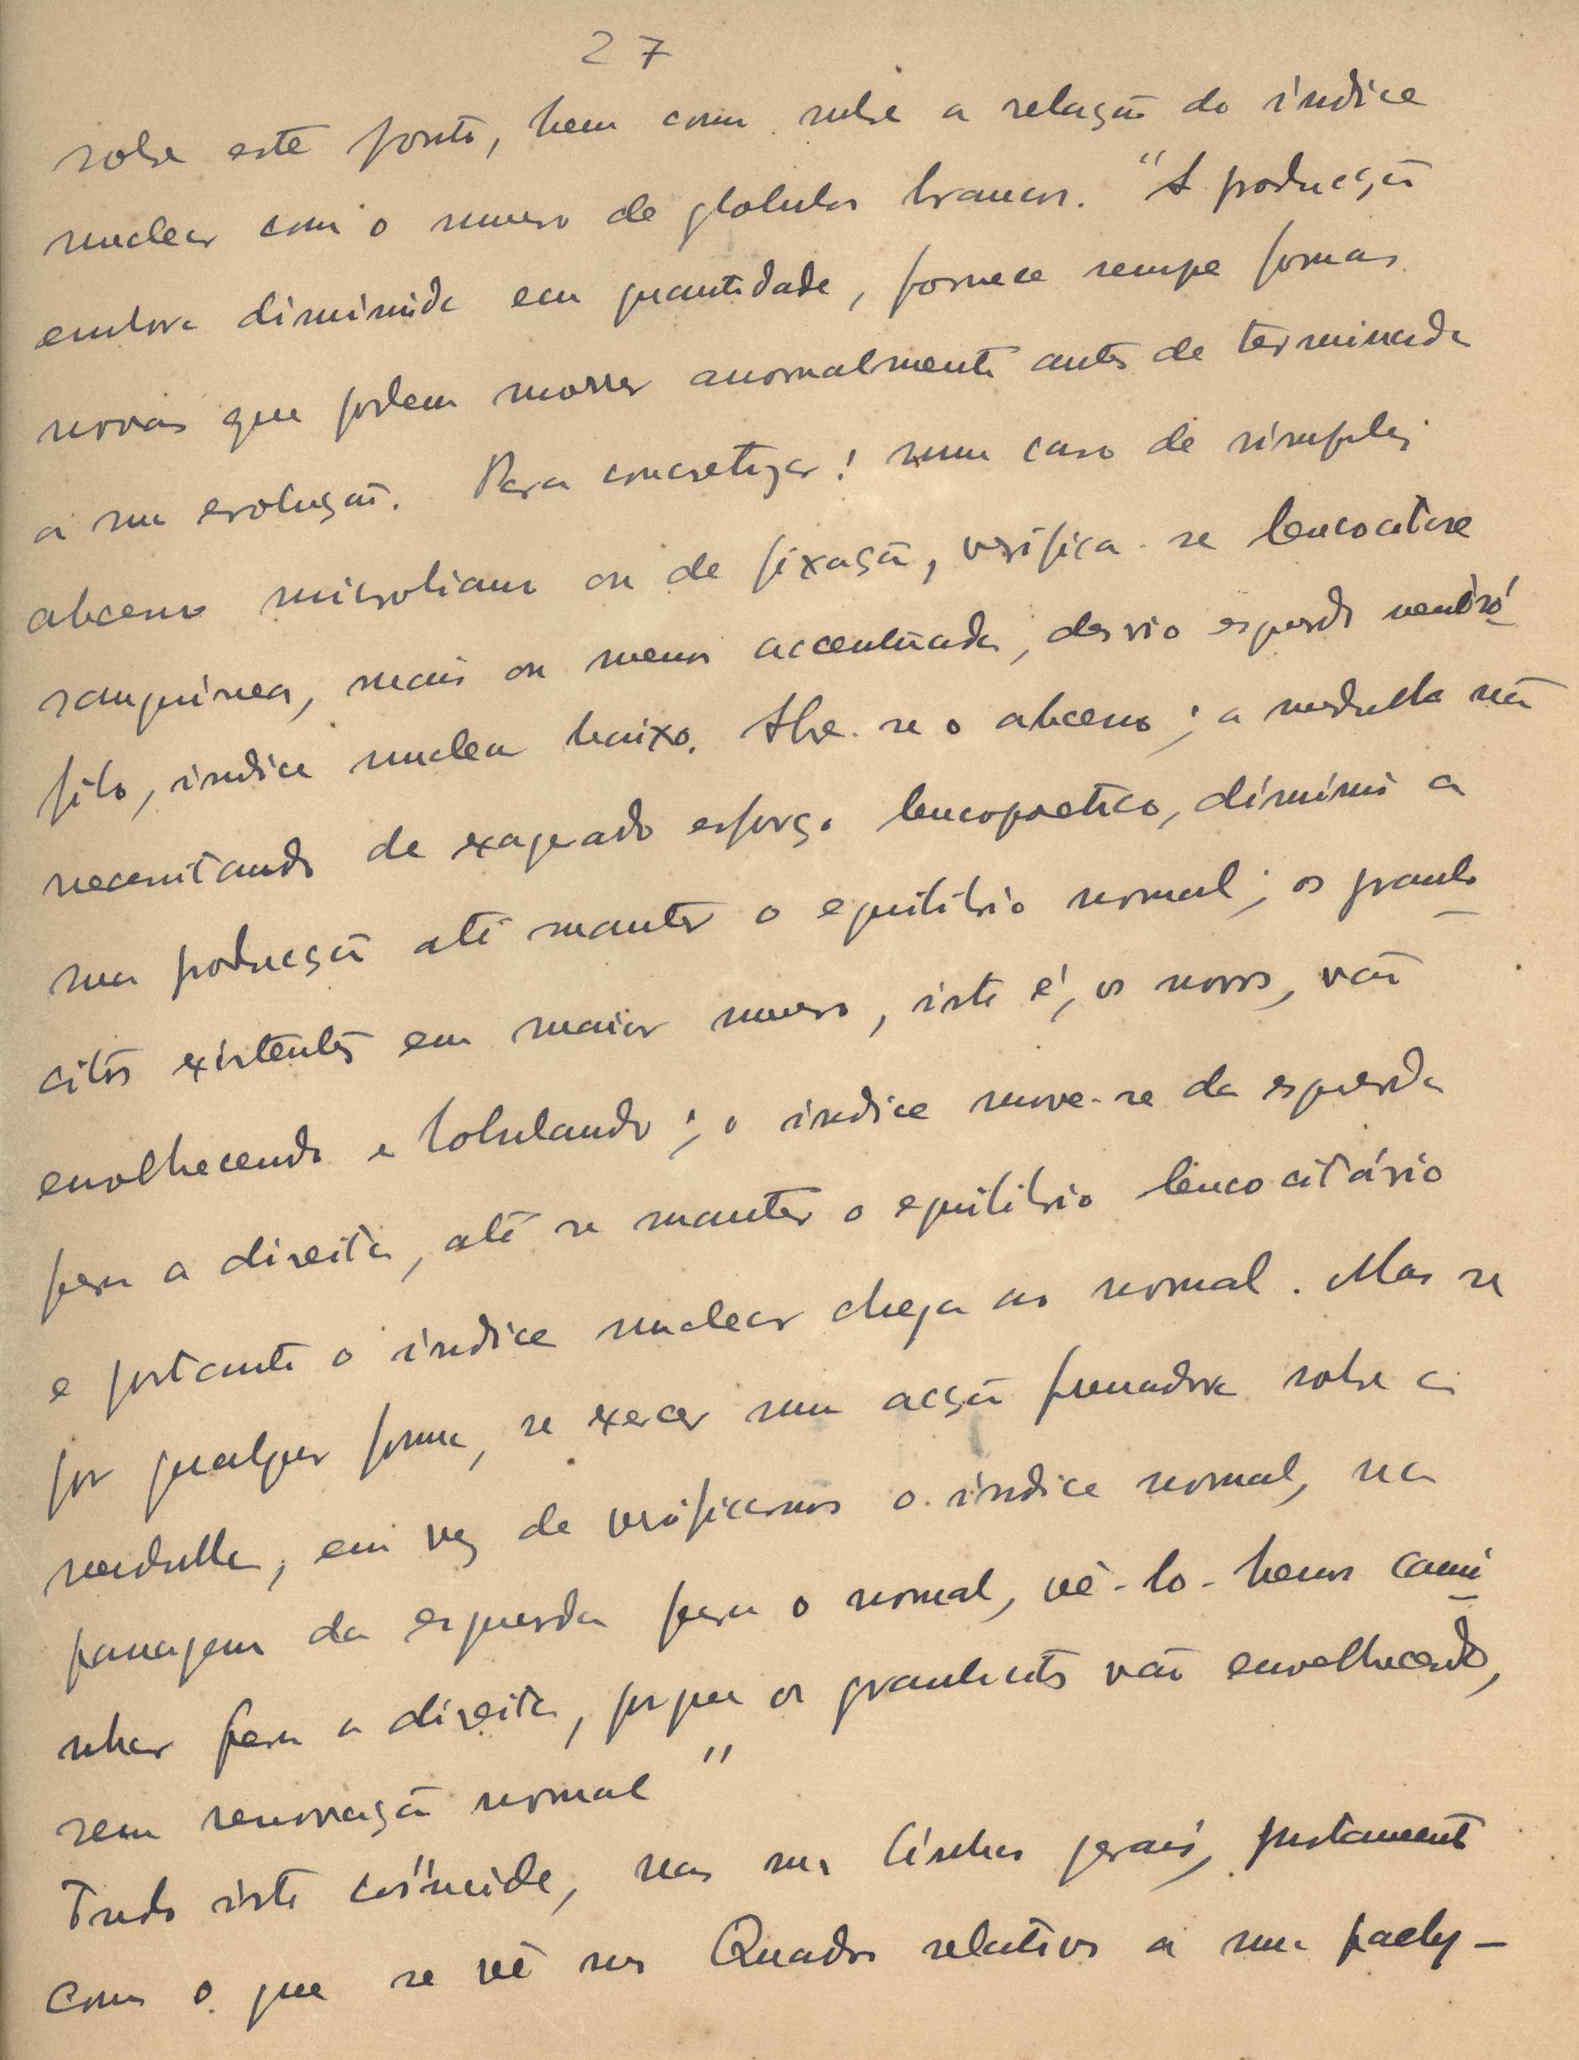 27
sobre este ponto, bem como sobre a relação do índice
nuclear com o numero de globulos brancos. "A producção
embora diminuida em quantidade, fornece sempre formas
novas que podem morrer anormalmente antes de terminada
a sua evolução. Para concretizar: num caso de simples
abcesso microbiano ou de fixação, verifica-se leucocitose
sanguinea, mais ou menos accentuada, desvio esquerdo neutró
filo, indice nuclear baixo. Abre-se o abcesso; a medulla não
necessitando de exagerado esforço leucopoetico, diminui a
sua producção até manter o equilibrio normal; os granulo
citos existentes em maior numero, isto é, os novos, vão
envelhecendo e lobulando; o indice move-se da esquerda
para a direita, até se manter o equilibrio leucocitário
e portanto o indice nuclear chega ao normal. Mas se
por qualquer forma, se exercer uma acção frenadora sobre a
medulla, em vez de verificarmos o indice normal, na
passagem da esquerda para o normal, vê-lo-hemos cami
nhar para a direita, porque os granulocitos vão envelhecendo,
sem renovação normal"
Tudo isto coïncide, nas suas linhas gerais, justamente
com o que se vê nos Quadros relativos a uma pachy-